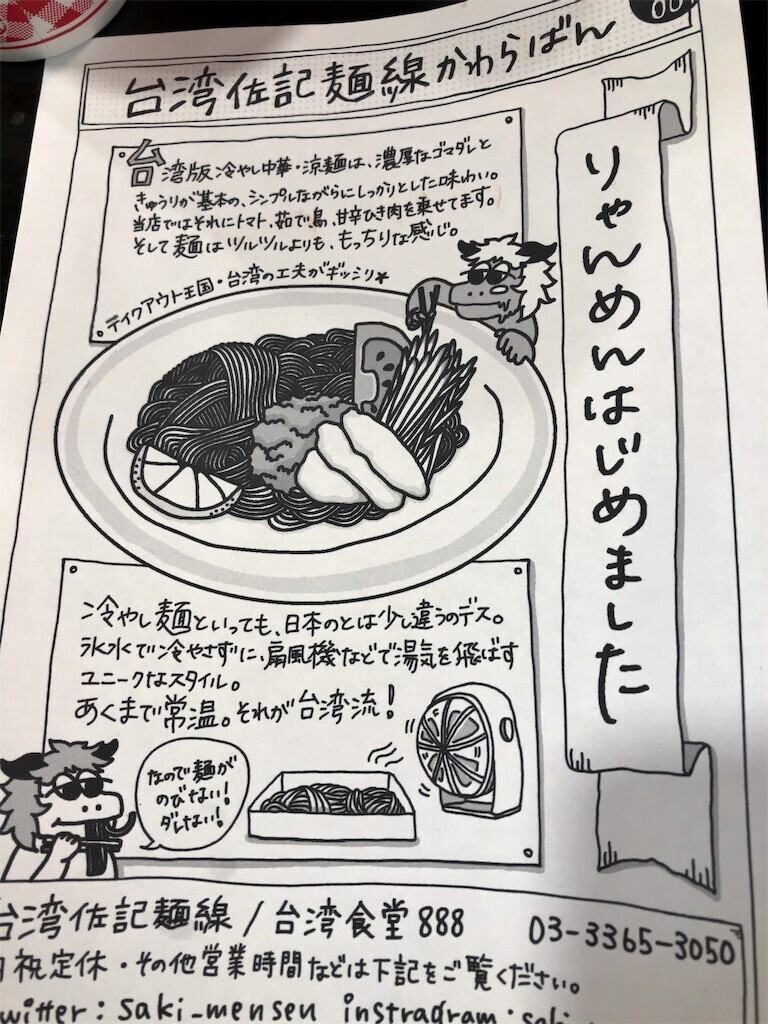 台湾佐記麺線かわらばん
りゃんめんはじめました
台湾版冷やし中華・涼麺は、濃厚なゴマダレと
きゅうりが基本の、シンプルながらにしっかりとした味わい。
当店ではそれにトマト、茹で鳥、甘辛ひき肉を乗せてます。
そして麺はツルツルよりも、もっちりな感じ。
テイクアウト王国・台湾の工夫がギッシリ★
冷やし麺といっても、日本のとは少し違うのデス。
氷水で冷やさずに、扇風機などで湯気を飛ばす
ユニークなスタイル。
あくまで常温。それが台湾流!
なので麺が
のびない!
ダレない!
台湾佐記麺線/台湾食堂888 03-3365-3050
日祝定休・その他営業時間などは下記をご覧ください。
twitter:saki_mensen instragram:saki_